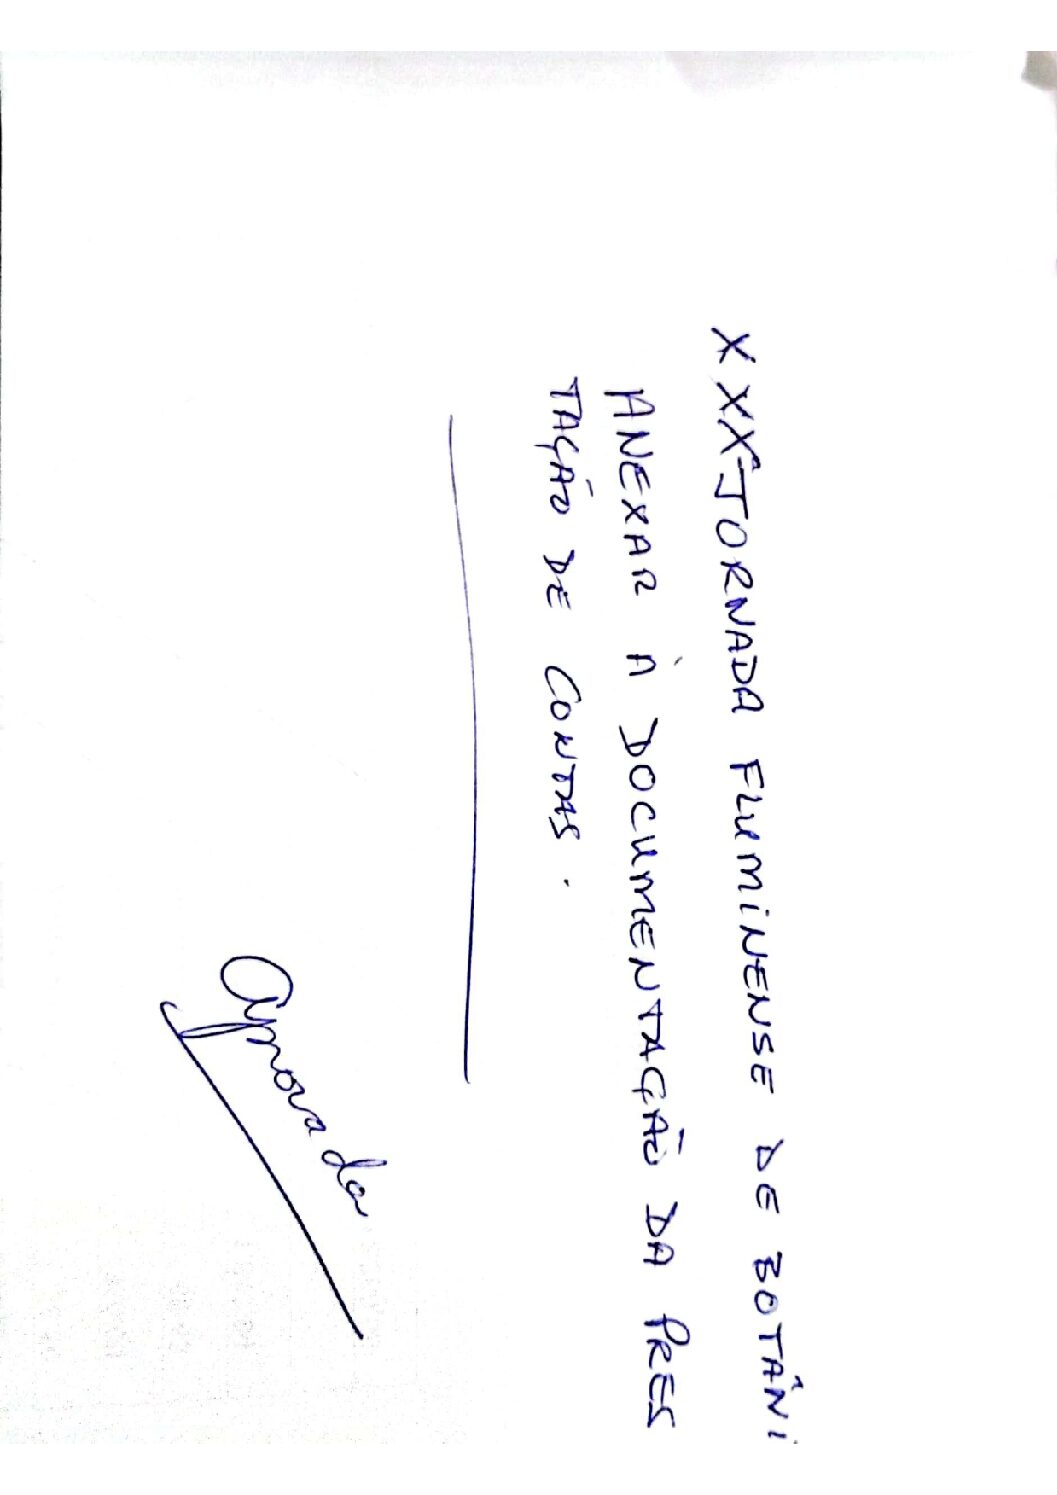 XXXª JORNADA FLUMINENSE DE BOTÂNI
ANEXAR À DOCUMENTAÇÃO DA PRES
TAÇÃO DE CONTAS.
Aprovada